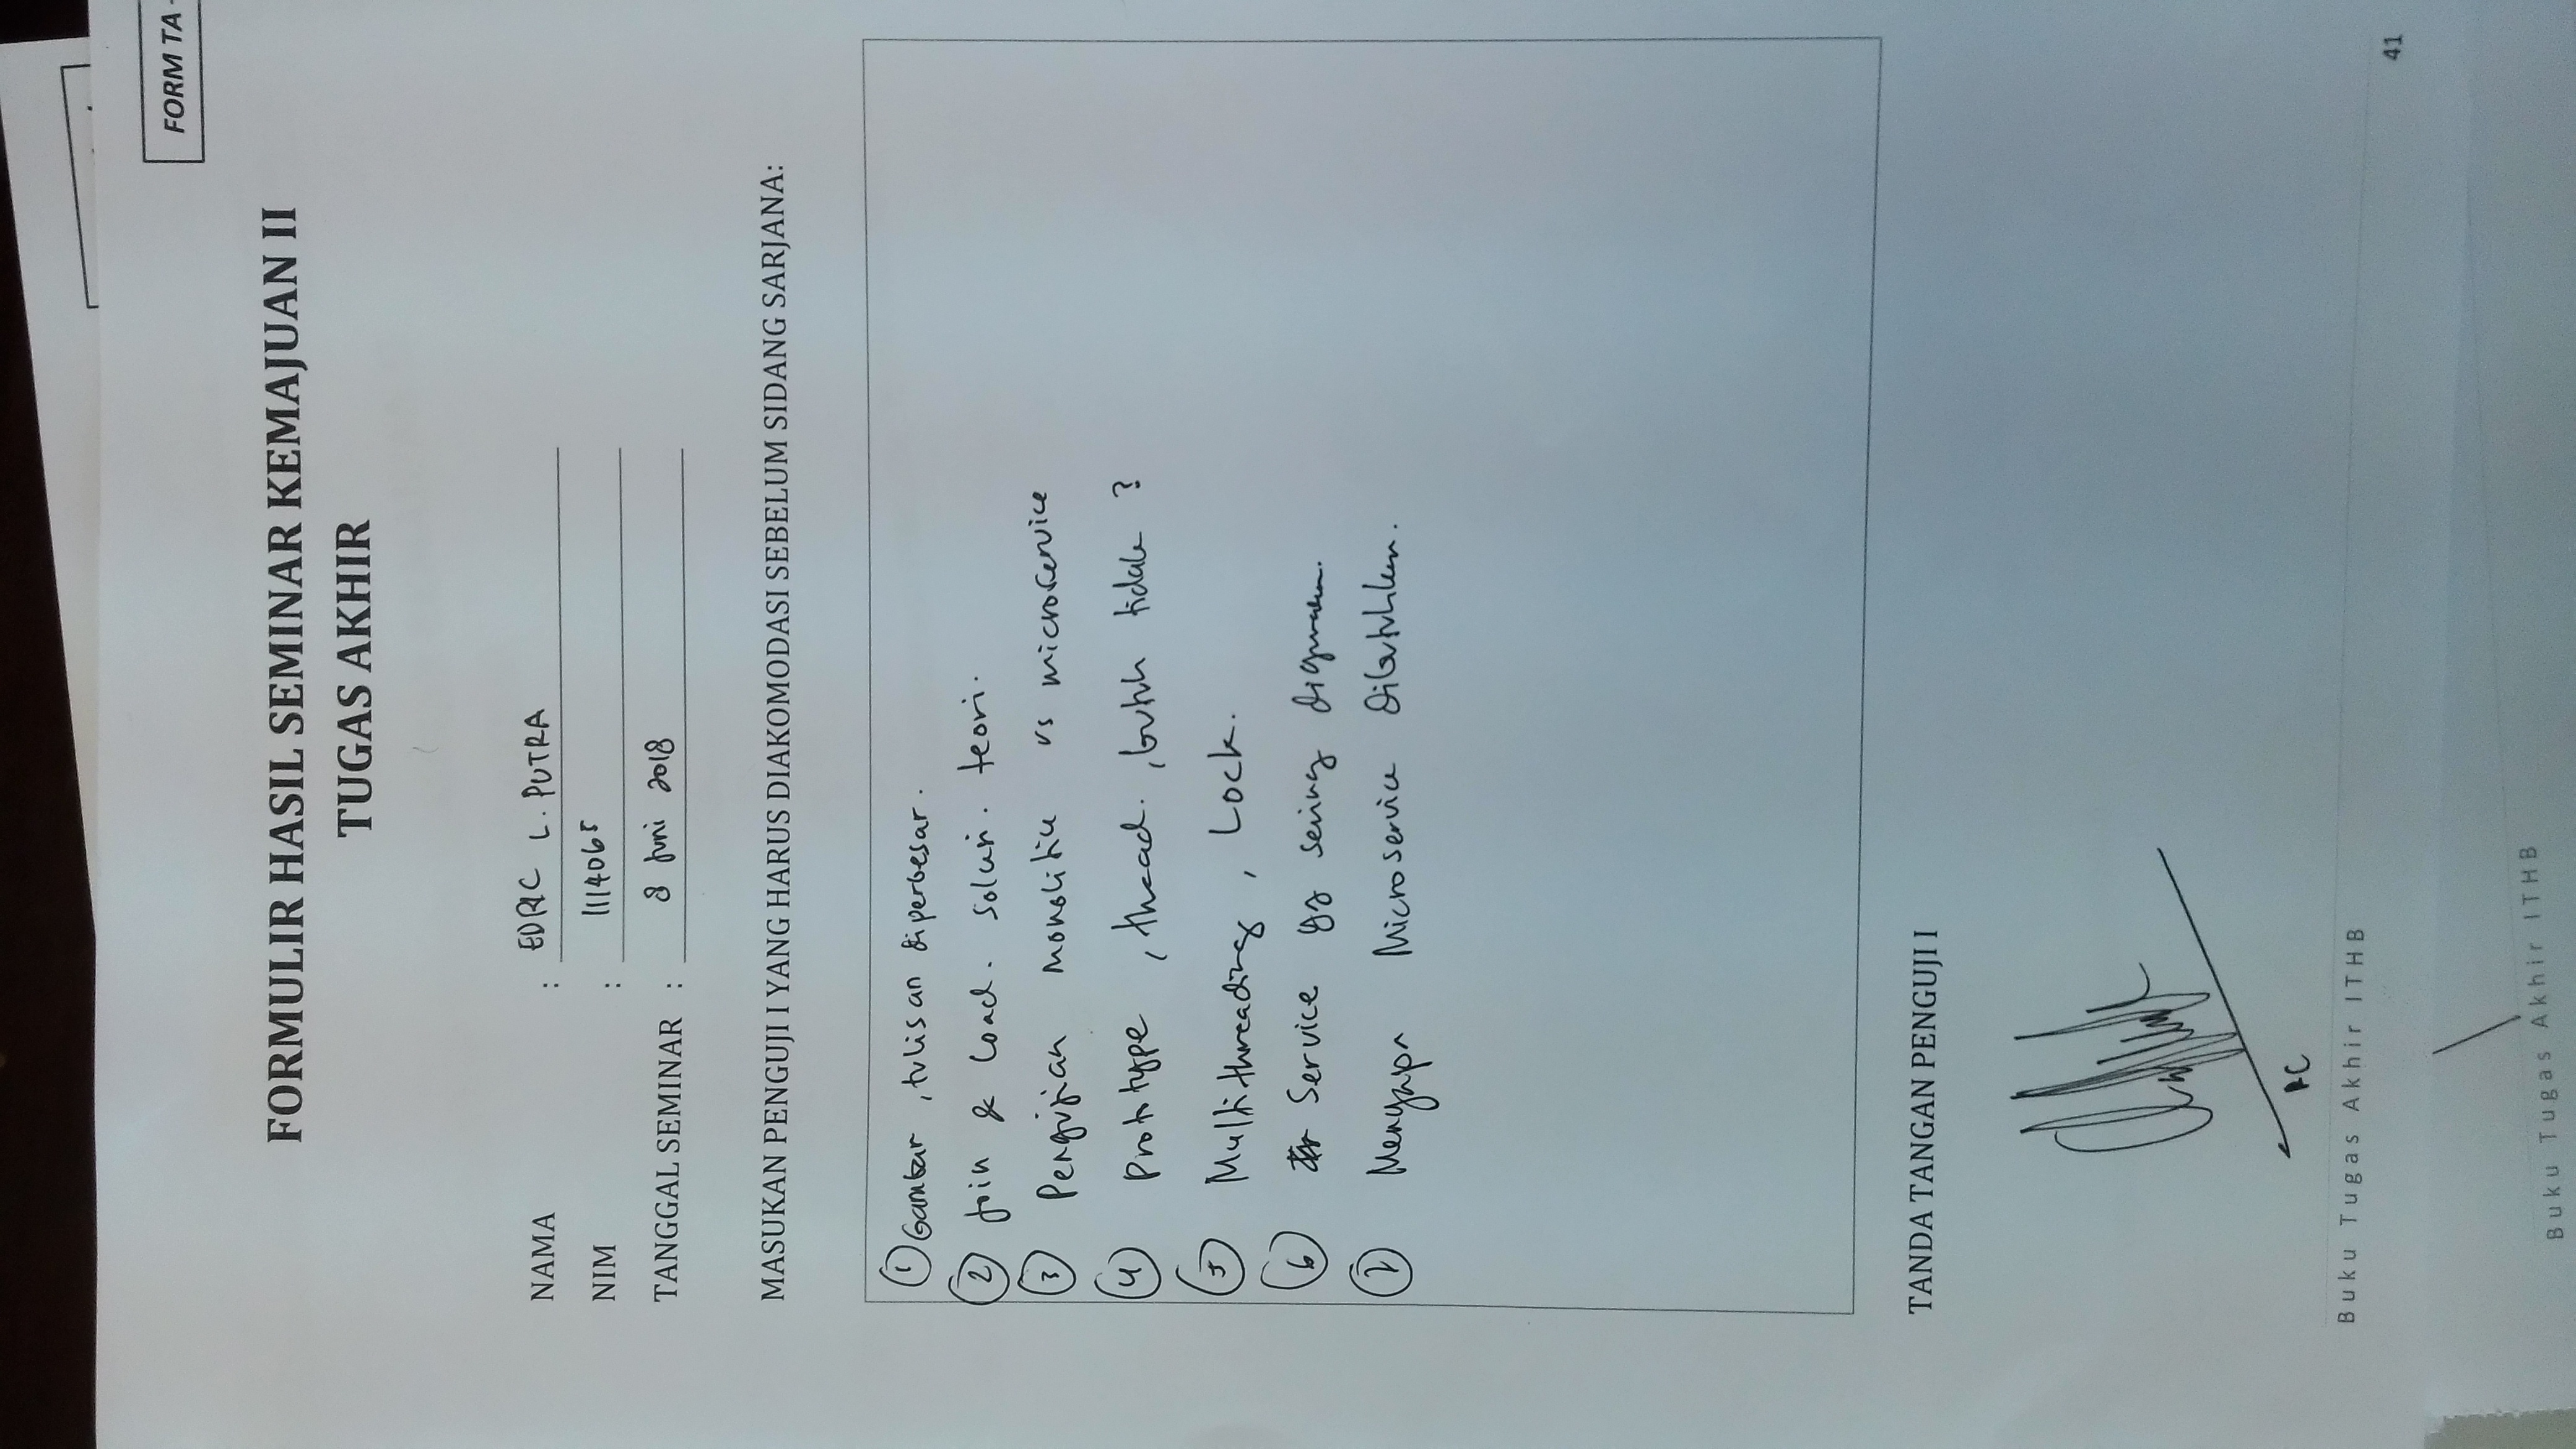 FORM TA -
FORMULIR HASIL SEMINAR KEMAJUAN II
TUGAS AKHIR
NAMA : EDRIC L. PUTRA
NIM : 1114065
TANGGAL SEMINAR : 8 Juni 2018
MASUKAN PENGUJI I YANG HARUS DIAKOMODASI SEBELUM SIDANG SARJANA:
1 Gambar , tulisan diperbesar.
2 Join & Load. solusi. teori.
3 Pengujian monolitik vs microservice
4 Prototype , thread. , butuh tidak ?
5 Multithreading , Lock.
6 Service yg sering digunakan.
7 Mengapa Microservice Dibutuhkan.
TANDA TANGAN PENGUJI I
Buku Tugas Akhir ITHB
41
Buku Tugas Akhir ITHB